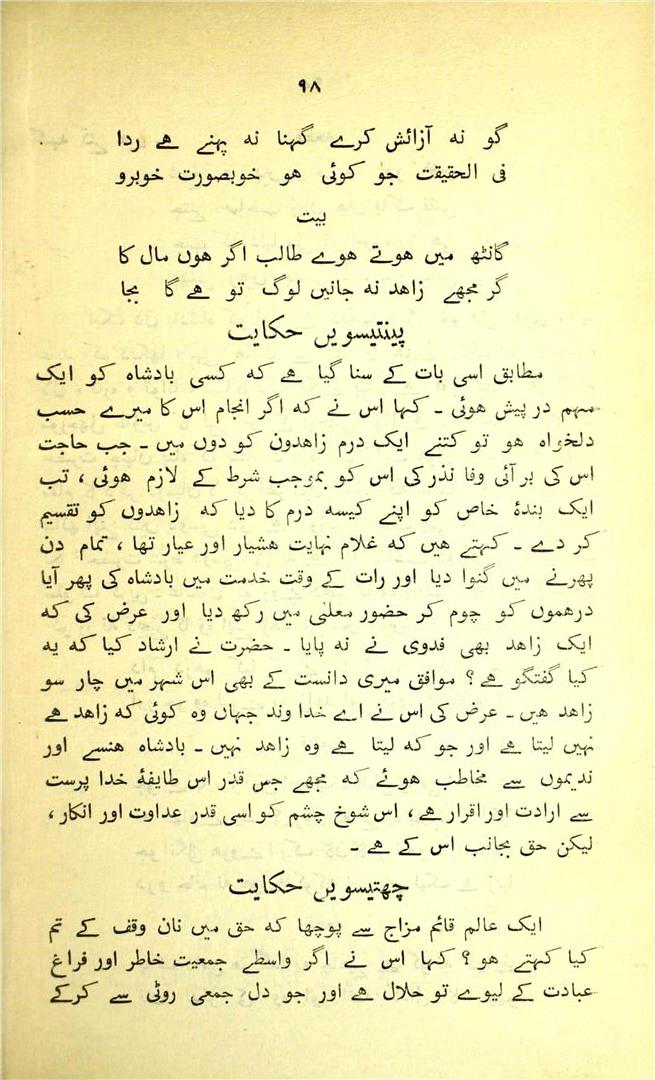 ۹۸
گو نہ آزائش کرے گہنا نہ پہنے ہے ردا
فی الحقیقت جو کوئی ہو خوبصورت خوبرو
بیت
گانٹھ میں ہوتے ہوے طالب اگر ہوں مال کا
گر مجھے زاہد نہ جانیں لوگ تو ہے گا بجا
پینتیسویں حکایت
مطابق اسی بات کے سنا گیا ہے کہ کسی بادشاہ کو ایک
مہم در پیش ہوئی ۔ کہا اس نے کہ اگر انجام اس کا میرے حسب
دلخواہ ہو تو کتنے ایک درم زاہدون کو دوں میں ۔ جب حاجت
اس کی بر آئی وفا نذر کی اس کو بموجب شرط کے لازم ہوئی ، تب
ایک بندۂ خاص کو اپنے کیسہ درم کا دیا کہ زاہدوں کو تقسیم
کر دے ۔ کہتے ہیں کہ غلام نہایت ہشیار اور عیار تھا ، تمام دن
پھرنے میں گنوا دیا اور رات کے وقت خدمت میں بادشاہ کی پھر آیا
درہموں کو چوم کر حضور معلیٰ میں رکھ دیا اور عرض کی کہ
ایک زاہد بھی فدوی نے نہ پایا ۔ حضرت نے ارشاد کیا کہ یہ
کیا گفتگو ہے ؟ موافق میری دانست کے بھی اس شہر میں چار سو
زاہد ہیں ۔ عرض کی اس نے اے خدا وند جہاں وہ کوئی کہ زاہد ہے
نہیں لیتا ہے اور جو کہ لیتا ہے وہ زاہد نہیں ۔ بادشاہ ہنسے اور
ندیموں سے مخاطب ہوئے کہ مجھے جس قدر اس طایفۂ خدا پرست
سے ارادت اور اقرار ہے ، اس شوخ چشم کو اسی قدر عداوت اور انکار ،
لیکن حق بجانب اس کے ہے ۔
چھتیسویں حکایت
ایک عالم قائم مزاج سے پوچھا کہ حق میں نان وقف کے تم
کیا کہتے ہو ؟ کہا اس نے اگر واسطے جمعیت خاطر اور فراغ
عبادت کے لیوے تو حلال ہے اور جو دل جمعی روٹی سے کرکے